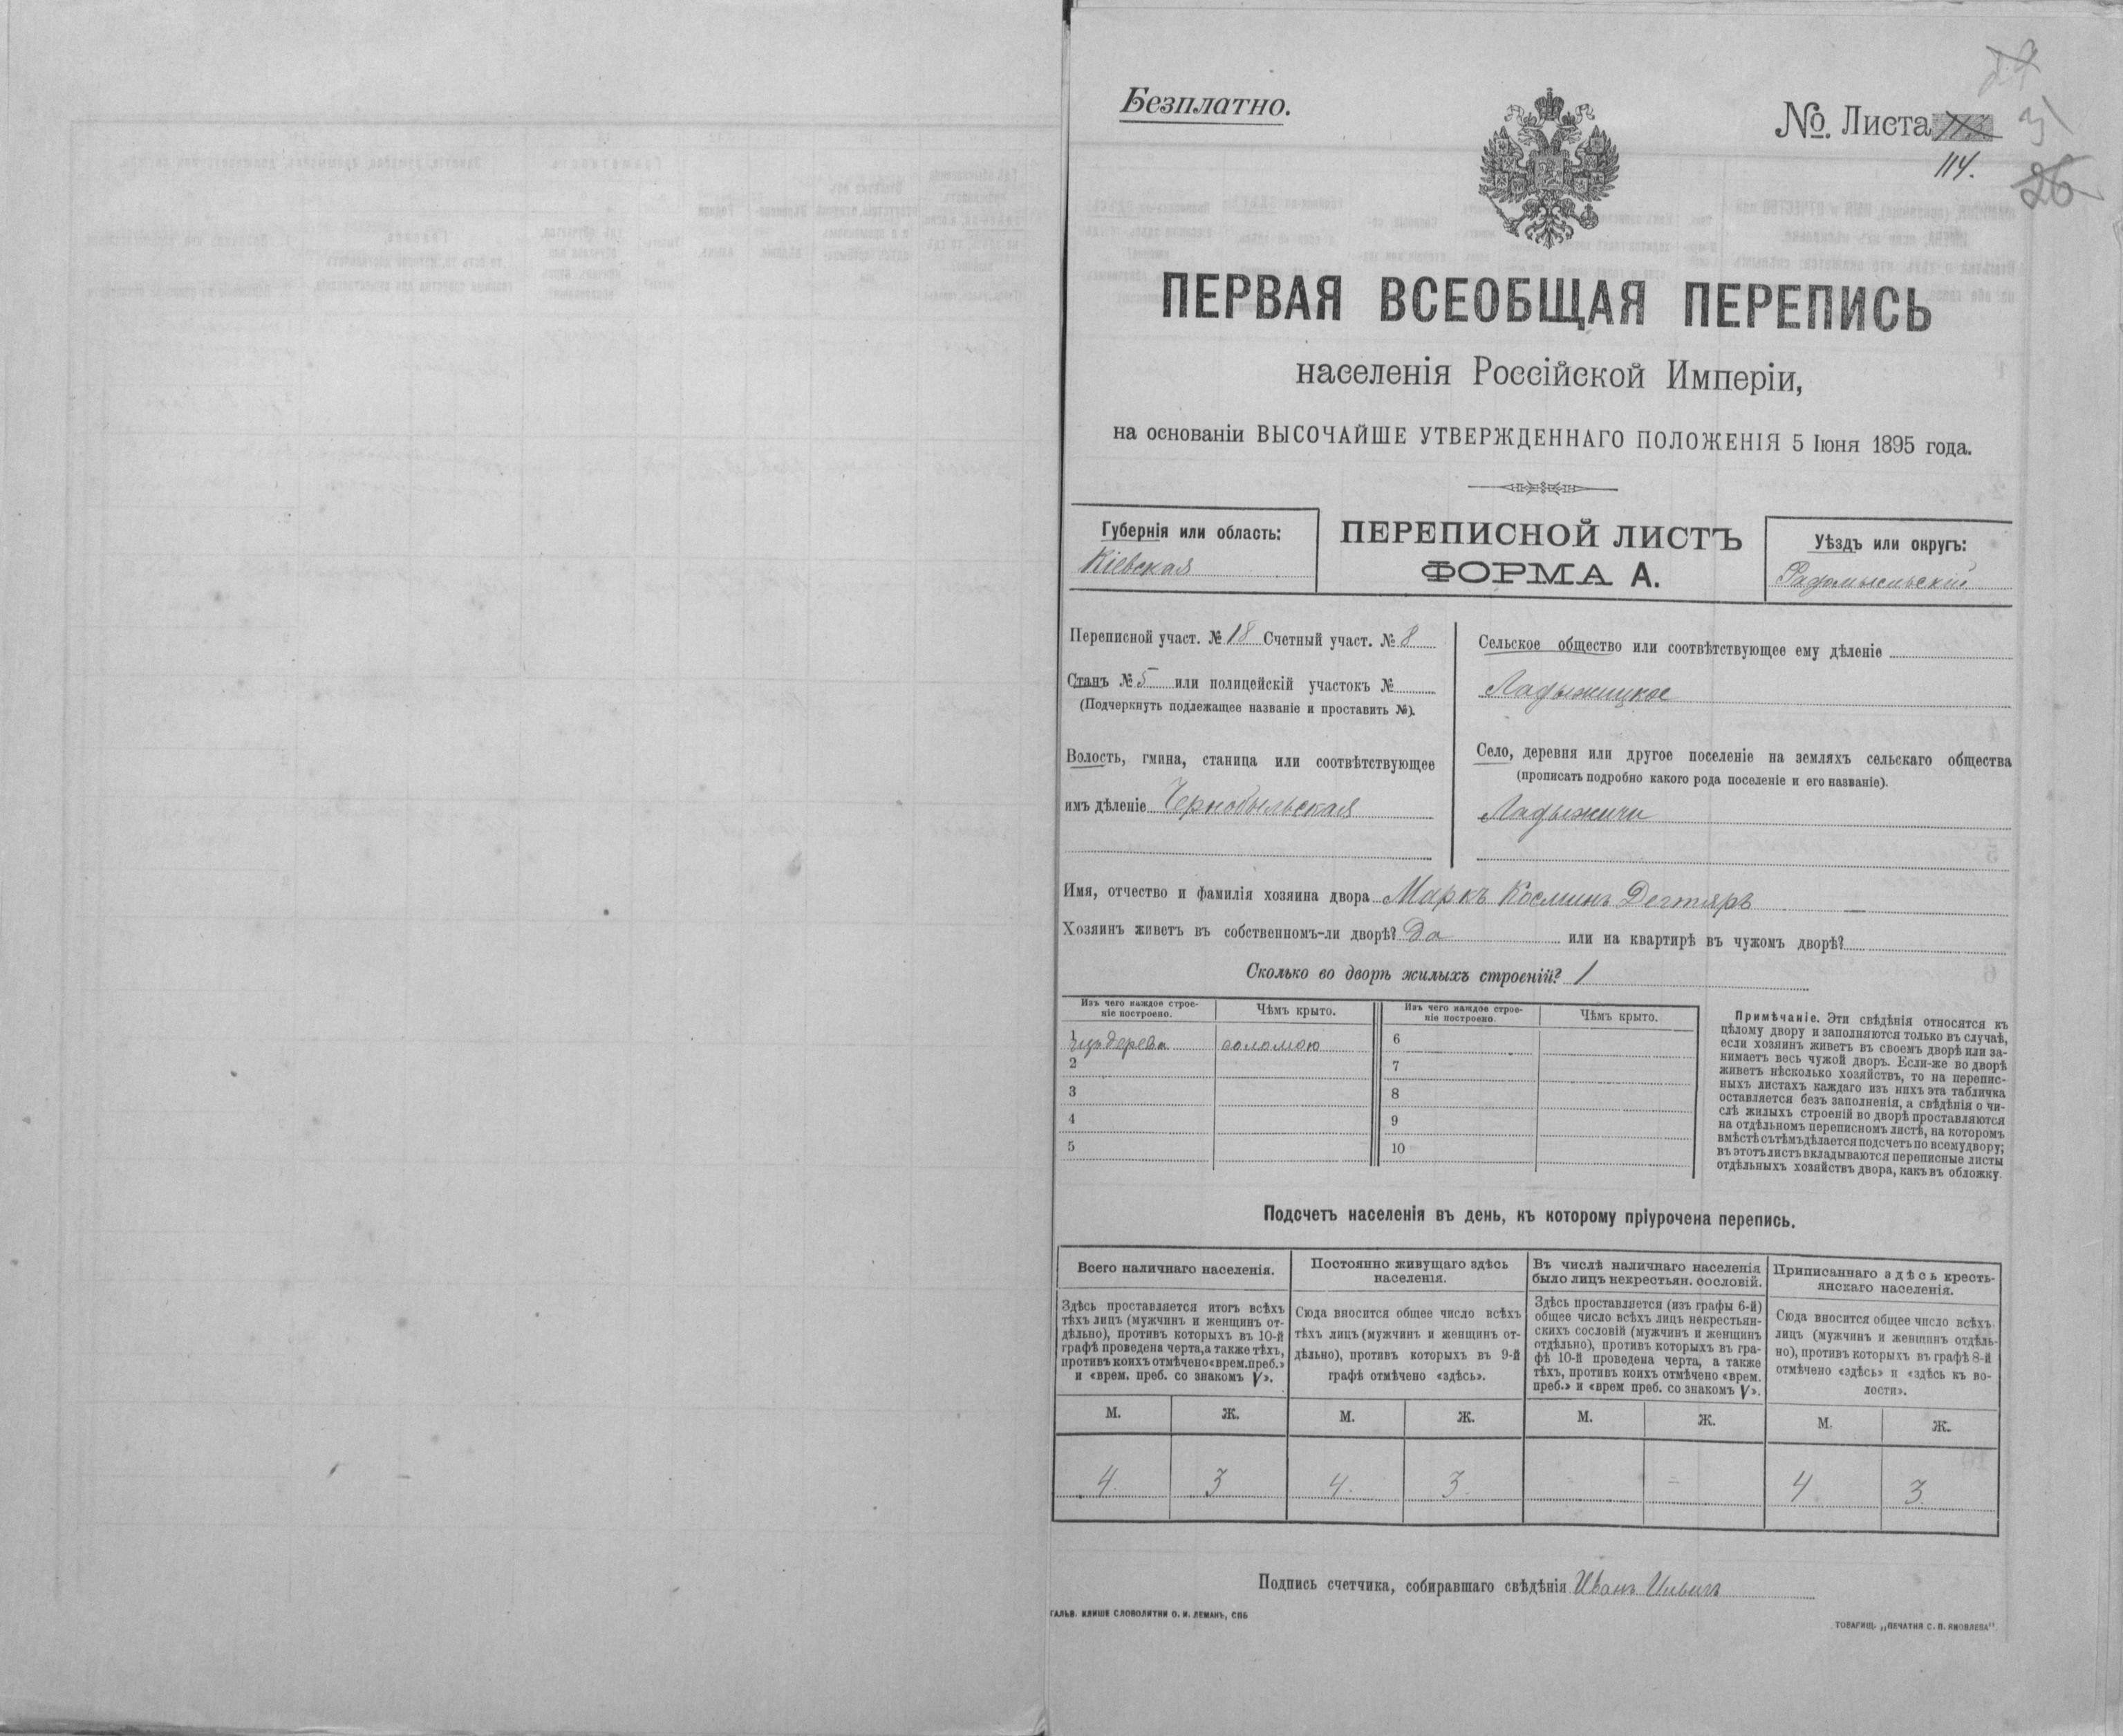 Безплатно.
№. Листа 113
114.
31
26
ПЕРВАЯ ВСЕОБЩАЯ ПЕРЕПИСЬ
населенія Россійской Имперіи,
на основаніи ВЫСОЧАЙШЕ УТВЕРЖДЕННАГО ПОЛОЖЕНІЯ 5 Іюня 1895 года.
Губернія или область:
Кіевская
ПЕРЕПИСНОЙ ЛИСТЪ
ФОРМА А.
Уѣздъ или округъ:
Радомысльскій
Переписной участ. № 18 Счетный участ. № 8
Станъ № 5 или полицейскій участокъ №
(Подчеркнуть подлежащее названіе и проставить №).
Волость, гмина, станица или соотвѣтствующее
имъ дѣленіе Чернобыльская
Сельское общество или соотвѣтствующее ему дѣленіе
Ладыжицкое
Село, деревня или другое поселеніе на земляхъ сельскаго общества
(прописать подробно какого рода поселеніе и его названіе).
Ладыжичи
Имя, отчество и фамилія хозяина двора Маркъ Косминъ Дегтяръ
Хозяинъ живетъ въ собственномъ-ли дворѣ? Да или на квартирѣ въ чужомъ дворѣ?
Сколько во дворѣ жилыхъ строеній? 1
Изъ чего каждое строе-
ніе построено.
Чѣмъ крыто.
Изъ чего каждое строе-
ніе построено.
Чѣмъ крыто.
1 изъ дерева соломою 6
2 7
3 8
4 9
5 10
Примѣчаніе. Эти свѣдѣнія относятся къ
цѣлому двору и заполняются только въ случаѣ,
если хозяинъ живетъ въ своемъ дворѣ или за-
нимаетъ весь чужой дворъ. Если-же во дворѣ
живетъ нѣсколько хозяйствъ, то на перепис-
ныхъ листахъ каждаго изъ нихъ эта табличка
оставляется безъ заполненія, а свѣдѣнія о чи-
слѣ жилыхъ строеній во дворѣ проставляются
на отдѣльномъ переписномъ листѣ, на которомъ
вмѣстѣ съ тѣмъ дѣлается подсчетъ по всему двору;
въ этотъ листъ вкладываются переписные листы
отдѣльныхъ хозяйствъ двора, какъ въ обложку.
Подсчетъ населенія въ день, къ которому пріурочена перепись.
Всего наличнаго населенія.
Здѣсь проставляется итогъ всѣхъ
тѣхъ лицъ (мужчинъ и женщинъ от-
дѣльно), противъ которыхъ въ 10-й
графѣ проведена черта, а также тѣхъ,
противъ коихъ отмѣчено «врем. преб.»
и «врем. преб. со знакомъ V».
Постоянно живущаго здѣсь
населенія.
Сюда вносится общее число всѣхъ
тѣхъ лицъ (мужчинъ и женщинъ от-
дѣльно), противъ которыхъ въ 9-й
графѣ отмѣчено «здѣсь».
Въ числѣ наличнаго населенія
было лицъ некрестьян. сословій.
Здѣсь проставляется (изъ графы 6-й)
общее число всѣхъ лицъ некрестьян-
скихъ сословій (мужчинъ и женщинъ
отдѣльно), противъ которыхъ въ гра-
фѣ 10-й проведена черта, а также
тѣхъ, противъ коихъ отмѣчено «врем.
преб.» и «врем преб. со знакомъ V».
Приписаннаго здѣсь кресть-
янскаго населенія.
Сюда вносится общее число всѣхъ
лицъ (мужчинъ и женщинъ отдѣль-
но), противъ которыхъ въ графѣ 8-й
отмѣчено «здѣсь» и «здѣсь къ во-
лости».
М. Ж. М. Ж. М. Ж. М. Ж.
4. 3 4. 3. = = 4 3.
Подпись счетчика, собиравшаго свѣдѣнія Иванъ
ГАЛЬВ. КЛИШЕ СЛОВОЛИТНИ О. И. ЛЕМАНЪ, СПБ
ТОВАРИЩ. „ПЕЧАТНЯ С. П. ЯКОВЛЕВА"